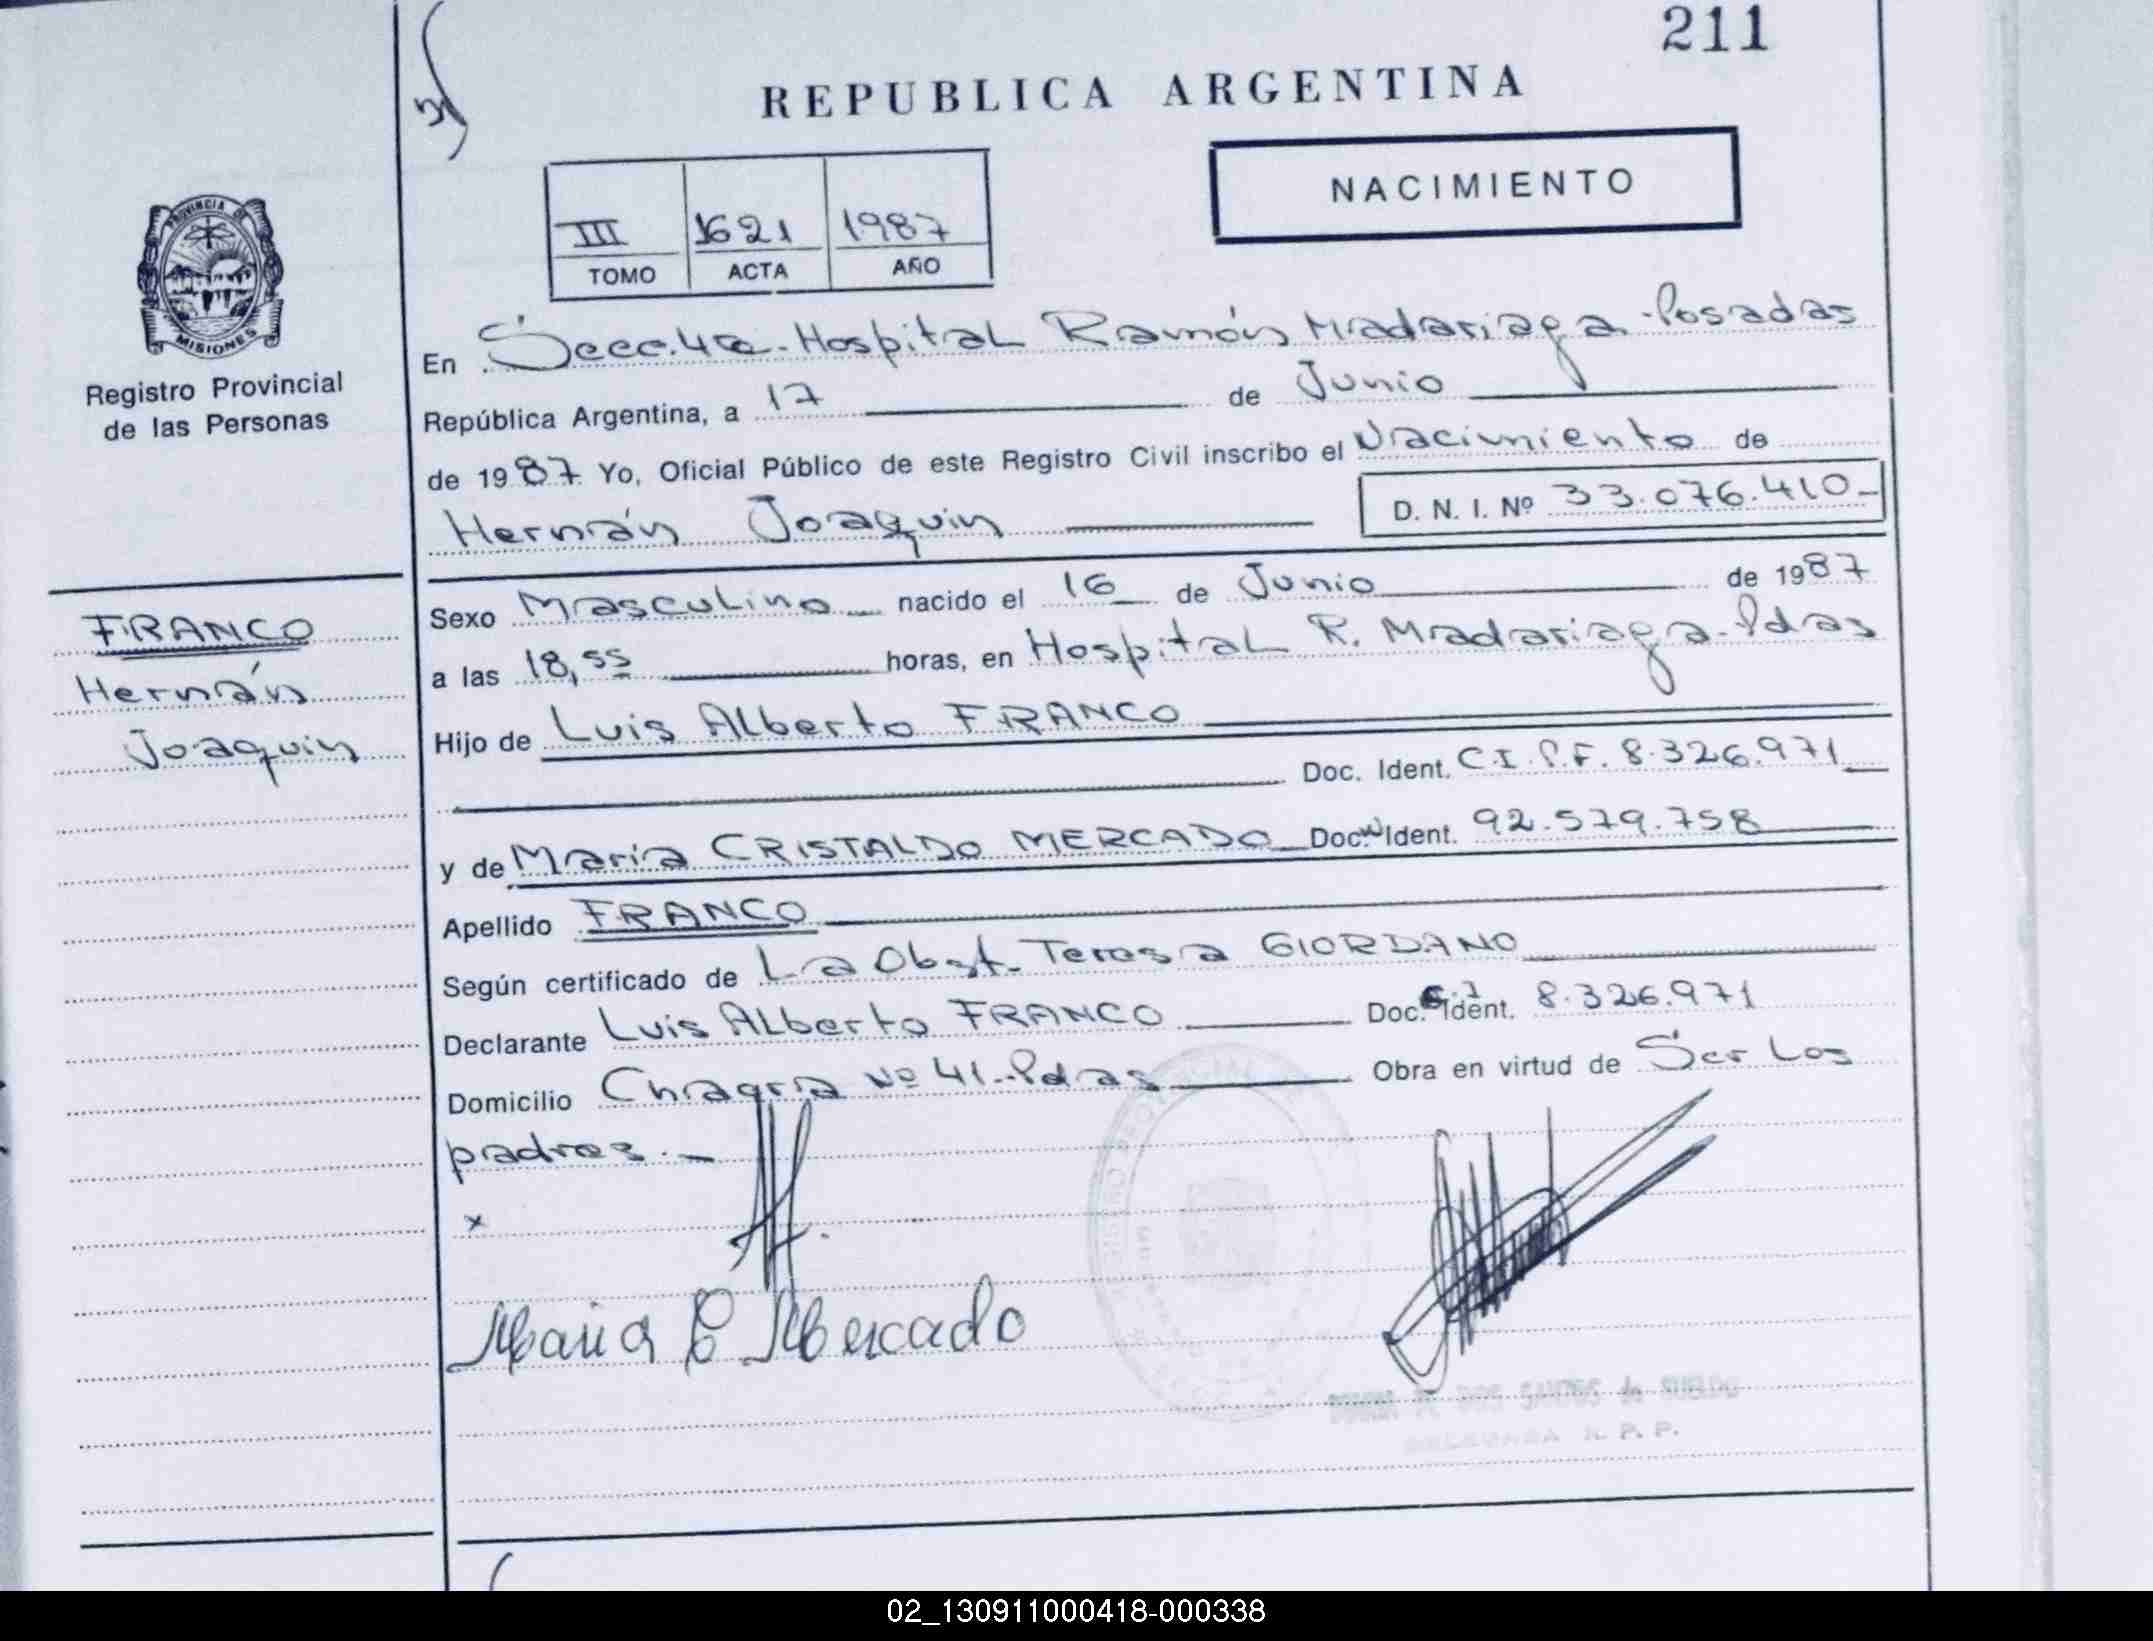 211
REPUBLICA ARGENTINA
NACIMIENTO
III 1621 1987
TOMO ACTA AÑO
PROVINCIA DE
MISIONES
Registro Provincial
de las Personas
En Secc. 4ta. Hospital Ramón Madariaga - Posadas
República Argentina, a 17 de Junio
de 1987 Yo, Oficial Público de este Registro Civil inscribo el Nacimiento de
Hernán Joaquín D. N. I. Nº 33.076.410-
FRANCO
Hernán
Joaquín
Sexo Masculino nacido el 16 de Junio de 1987
a las 18,55 horas, en Hospital R. Madariaga - Pdas
Hijo de Luis Alberto FRANCO
Doc. Ident. C.I.P.F. 8.326.971
y de María CRISTALDO MERCADO Doc. Ident. 92.579.758
Apellido FRANCO
Según certificado de La Obst. Teresa GIORDANO
Declarante Luis Alberto FRANCO Doc. Ident. 8.326.971
Domicilio Chacra Nº 41 - Pdas Obra en virtud de Ser los
padres. -
x
Maria C Mercado
DOS SANTOS de SUELDO
R. P. P.
02_130911000418-000338